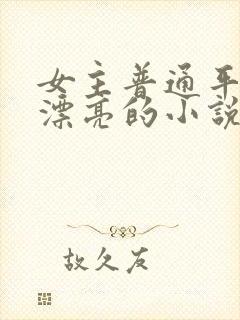 女主普通平
漂亮的小説
故久友